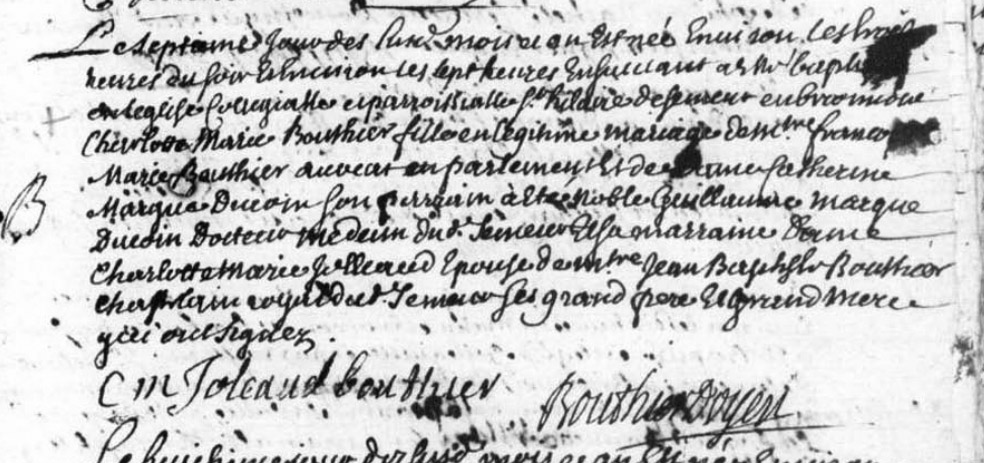 Le septieme Jour des susd. mois et an Est née Environ les trois
heures du soir Et Environ les sept heures Ensuivant a Esté baptisée
en leglise Collegialle et parroissialle St. hilaire de semeur en brionnois
Charlotte Marie Bouthier fille en legitime mariage de mtre françois
Marie Bouthier avocat en parlement Et de dame Catherine
Marque Ducoin son parrain à Eté Noble Guillaume marque
Ducoin Docteur medecin dud. Semeur Et sa marraine Dame
Charlotte Marie Jolleaud Epouse de mtre Jean Baptiste Bouthier
Chastelain royal dud. Semeur ses grand pere Et grand Mere
qui ont signez.
C M Joleaud bouthier
Bouthier Doyen
Le